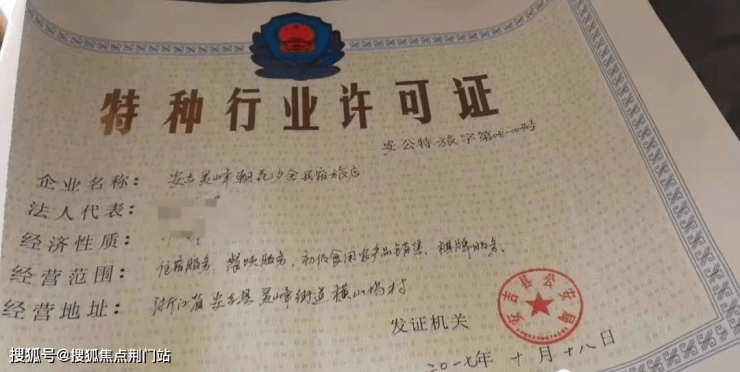 特种行业许可证
安公特旅字第
企业名称: 安吉灵峰朝花夕舍民宿旅店
法人代表:
经济性质:
经营范围: 住宿服务、餐饮服务、初级食用农产品销售、棋牌服务。
经营地址: 浙江省安吉县灵峰街道横山坞村
发证机关
安吉县公安局
二〇一七年十月十八日
搜狐号@搜狐焦点荆门站